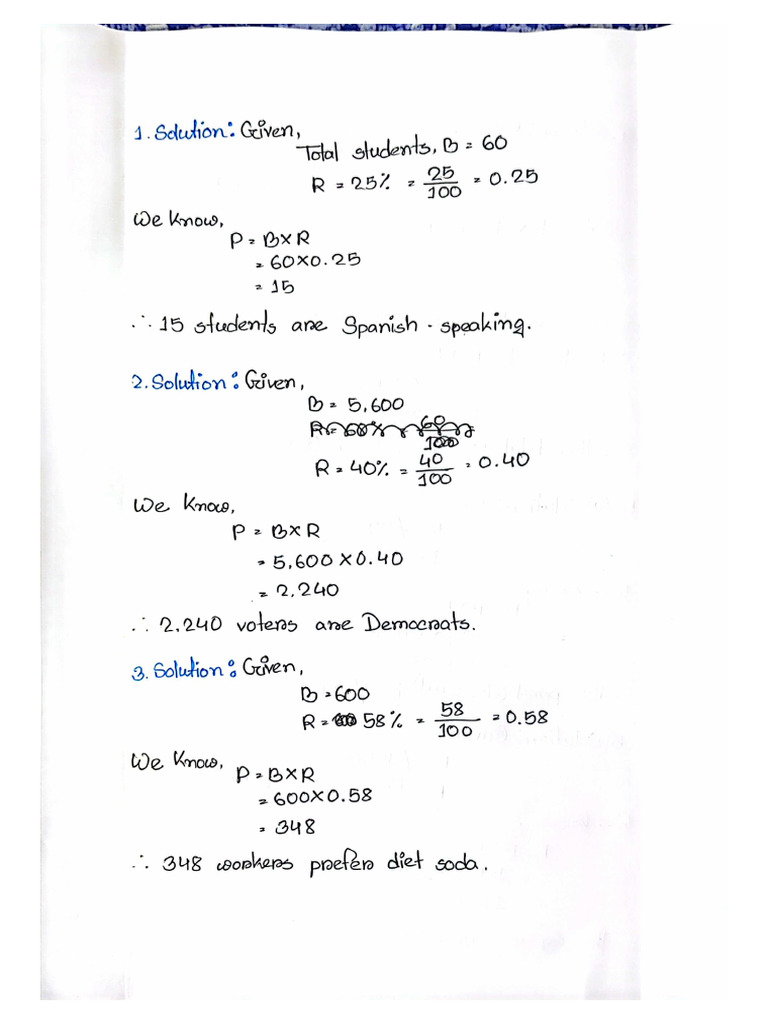 1. Solution: Given,
Total students, B = 60
R = 25% = 25/100 = 0.25
We Know,
P = B×R
= 60×0.25
= 15
∴ 15 students are Spanish-speaking.
2. Solution: Given,
B = 5,600
R = 60% 60/100
R = 40% = 40/100 = 0.40
We Know,
P = B×R
= 5,600×0.40
= 2,240
∴ 2,240 voters are Democrats.
3. Solution: Given,
B = 600
R = 58% = 58/100 = 0.58
We Know,
P = B×R
= 600×0.58
= 348
∴ 348 workers prefer diet soda.